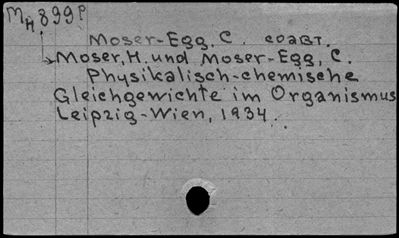 MA 899P
Moser-Egg, C. соавт.
Moser, H. und Moser-Egg, C.
Physikalisch-chemische
Gleichgewichte im Organismus
Leipzig-Wien, 1934.